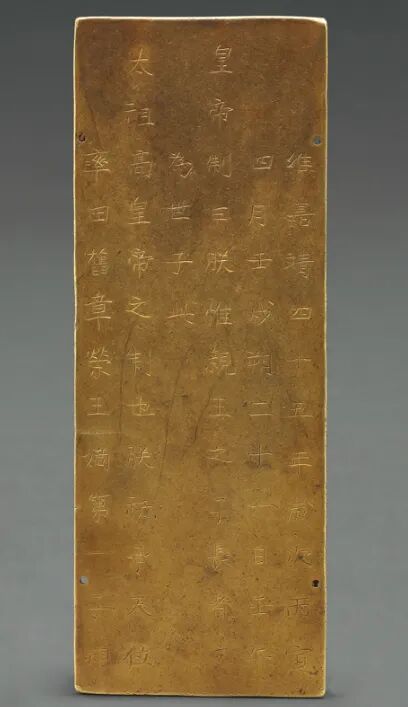 維嘉靖四十五年歲次丙寅
四月壬戌朔二十一日壬午
皇帝制曰朕惟親王之子長者
為世子此
太祖高皇帝之制也朕天位
率由舊章榮王第一子翊